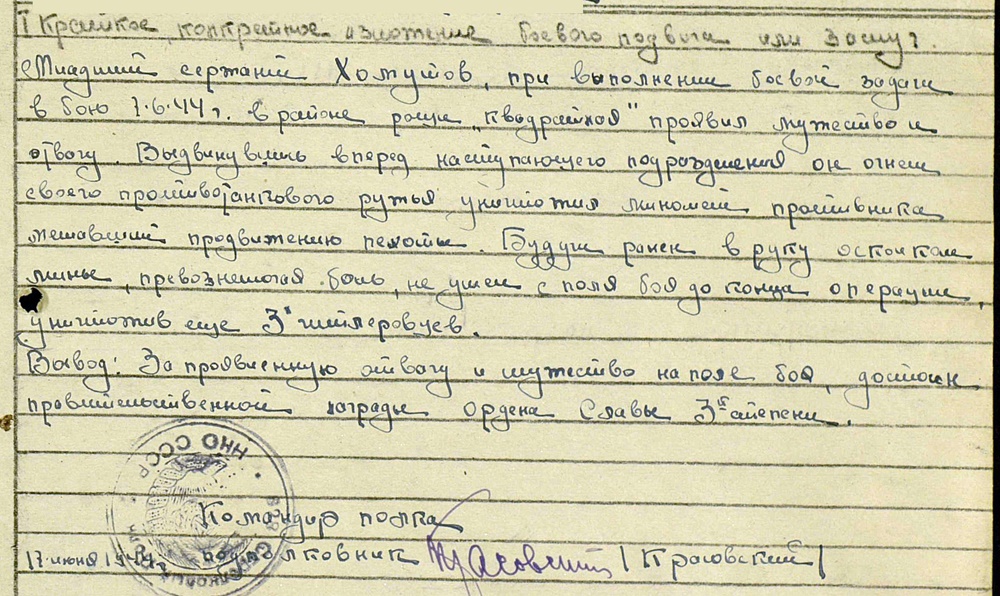 I Краткое, конкретное изложение боевого подвига или заслуг.
Младший сержант Хомутов, при выполнении боевой задачи
в бою 7.6.44 г. в районе рощи "Квадратная" проявил мужество и
отвагу. Выдвинувшись вперед наступающего подразделения он огнем
своего противотанкового ружья уничтожил миномет противника
мешавший продвижению пехоты. Будучи ранен в руку осколком
мины, превознемогая боль, не ушел с поля боя до конца операции,
уничтожив еще 3х гитлеровцев.
Вывод: За проявленную отвагу и мужество на поле боя, достоин
правительственной награды ордена Славы 3й степени.
ННО СССР
Командир полка
17 июня 1944 г. подполковник /Красовский/